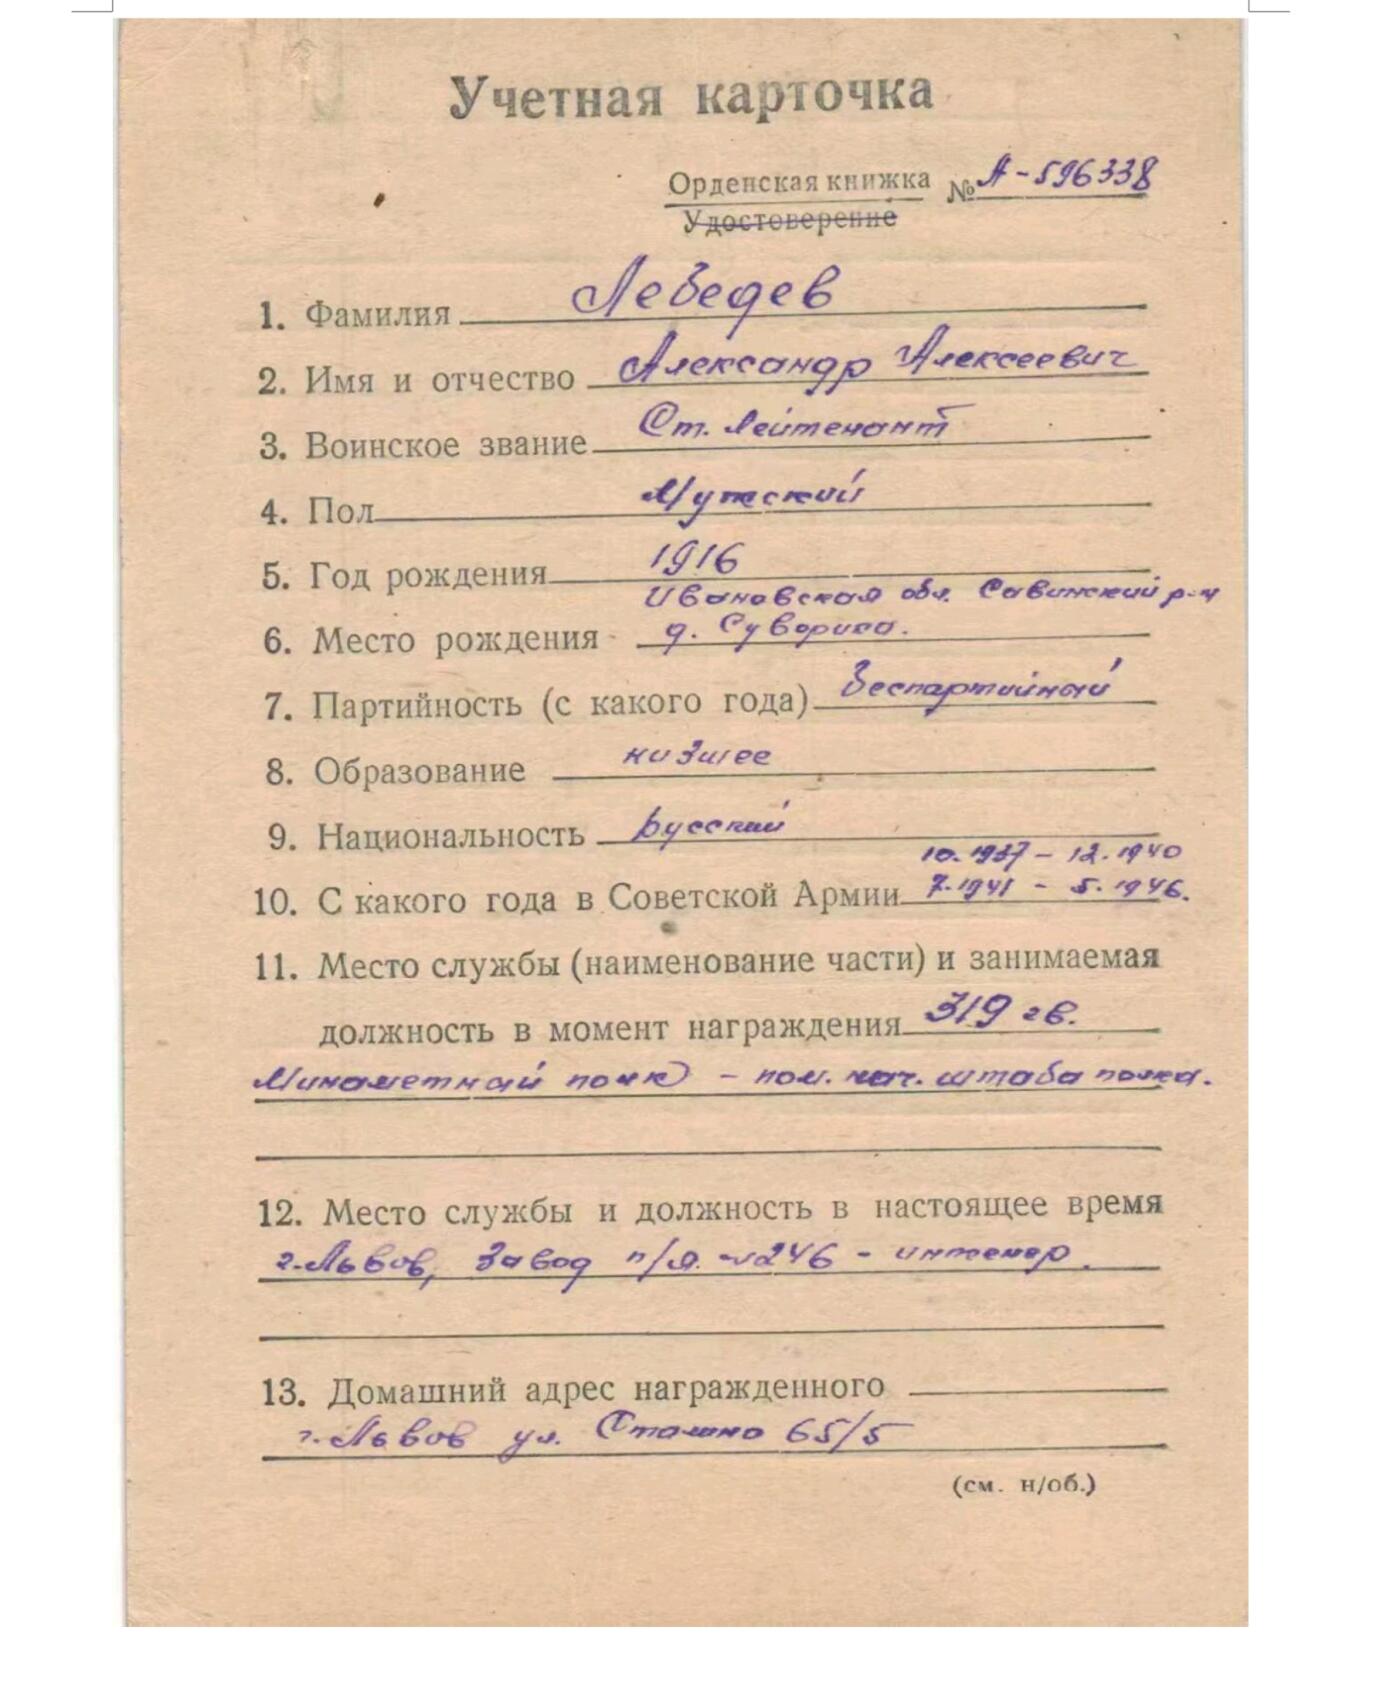 Учетная карточка
Орденская книжка № А-596338
Удостоверение
1. Фамилия Лебедев
2. Имя и отчество Александр Алексеевич
3. Воинское звание Ст. лейтенант
4. Пол Мужской
5. Год рождения 1916
Ивановская обл. Савинский р-н
6. Место рождения д. Суворика.
7. Партийность (с какого года) Беспартийный
8. Образование низшее
9. Национальность русский
10.1937 – 12.1940
10. С какого года в Советской Армии 7.1941 – 5.1946.
11. Место службы (наименование части) и занимаемая
должность в момент награждения 319 гв.
Минометный полк – пом. нач. штаба полка.
12. Место службы и должность в настоящее время
г. Львов, завод п/я. №246 – инженер.
13. Домашний адрес награжденного
г. Львов ул. 65/5
(см. н/об.)